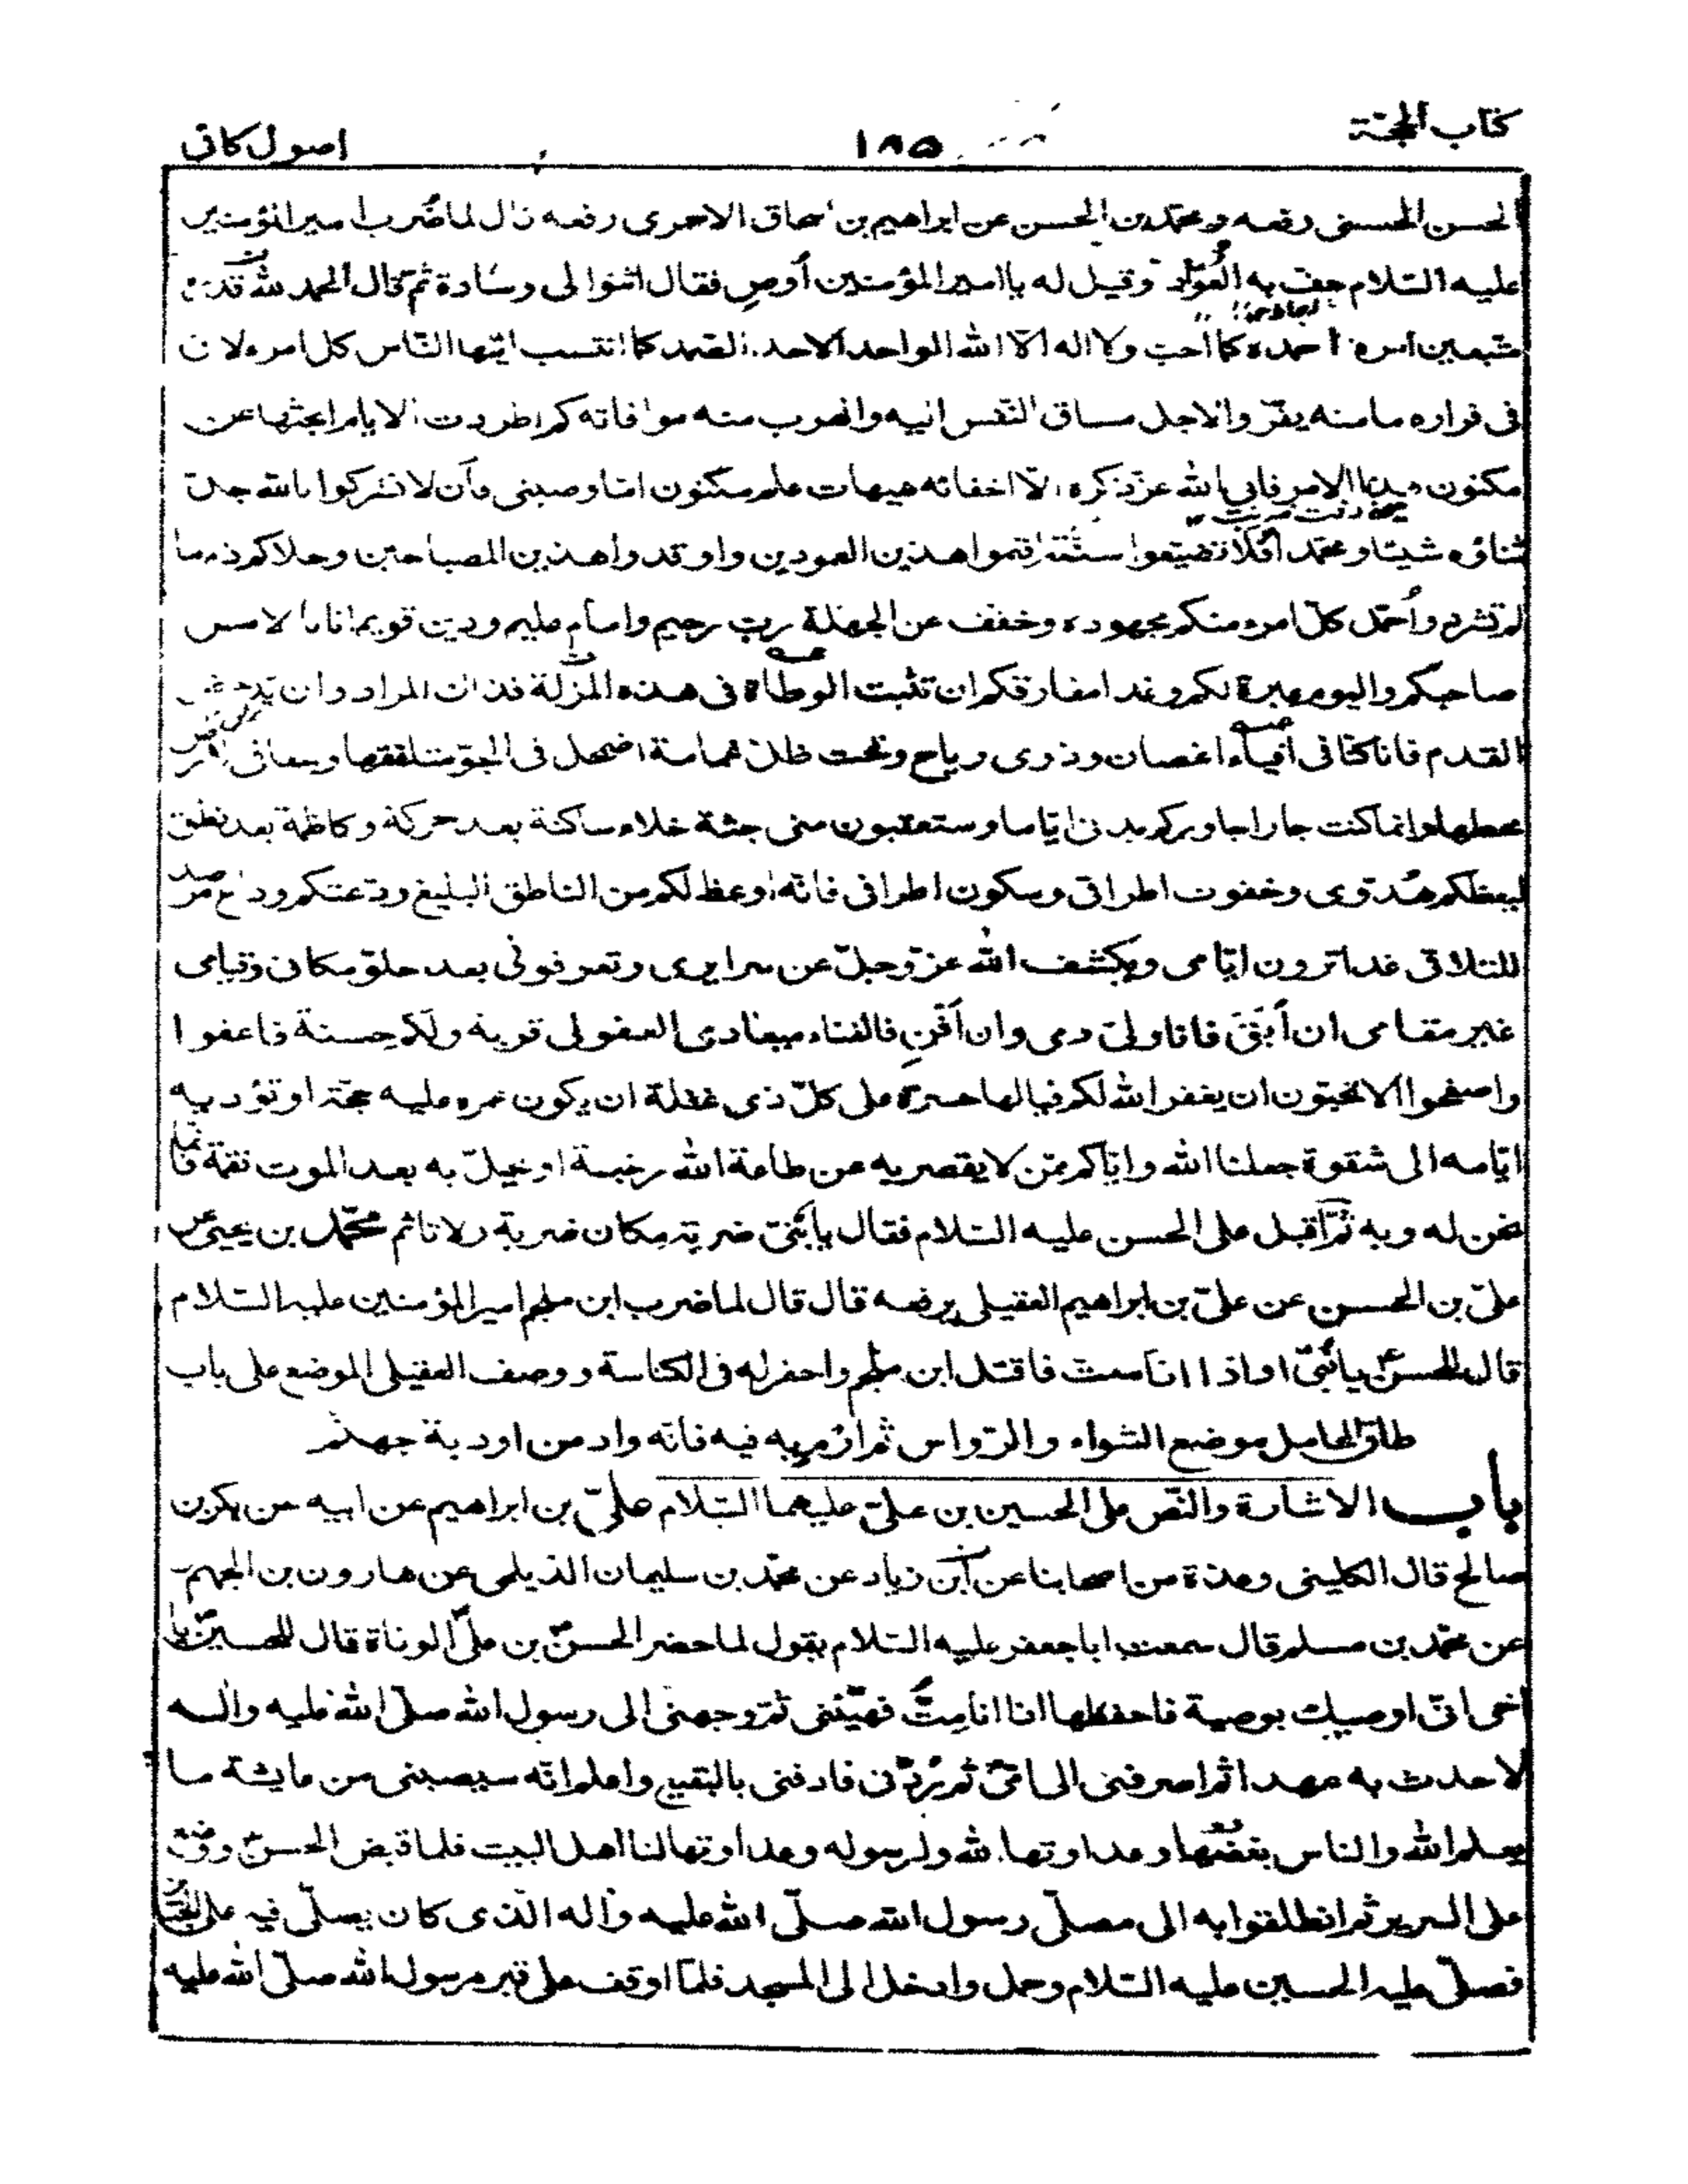 كتاب الحجة
١٨٥
اصول كافى
الحسن الحسنى رفعه ومحمد بن الحسن عن ابراهيم بن اسحاق الاحمرى رفعه قال لما ضُرب امير المؤمنين
عليه السّلام حفّ به العُوّاد وقيل له يا امير المؤمنين أوصِ فقال اثنوا لى وسادة ثم قال الحمد لله قدره
متبعين امره احمده كما احبّ ولا اله الّا الله الواحد الاحد الصّمد كما انتسب ايّها النّاس كل امرء لاق
فى فراره ما منه يفرّ والاجل مساق النّفس اليه والهرب منه موافاته كم اطردت الايام ابحثها عن
مكنون هذا الامر فابى الله عزّ ذكره الّا اخفائه هيهات علم مكنون امّا وصيتى فأن لا تشركوا بالله جلّ
ثناؤه شيئا ومحمّد أفلا تضيّعوا سنّته اقيموا هذين العمودين واوقدوا هذين المصباحين وخلاكم ذم ما
لم تشردوا حُمّل كلّ امرء منكم مجهوده وخفف عن الجهلة ربّ رحيم وامام عليم ودين قويم انا بالامس
صاحبكم واليوم عبرة لكم وغدا مفارقكم ان تثبت الوطاة فى هذه المزلّة فذاك المراد وان تدحض
القدم فانا كنّا فى افياء اغصان وذرى رياح وتحت ظلّ غمامة اضمحل فى الجوّ متلفقها وعفا فى الارض
محطها وانما كنت جارا جاوركم بدنى ايّاما وستعقبون منى جثة خلاء ساكنة بعد حركة وكاظمة بعد نطق
ليعظكم هُدوّى وخفوت اطراقى وسكون اطرافى فانّه اوعظ لكم من الناطق البليغ ودّعتكم وداع مرصد
للتلاقى غدا ترون ايّامى ويكشف الله عزّ وجلّ عن سرايرى وتعرفونى بعد خلوّ مكانى وقيام
غير مقامى ان أبقَ فانا ولىّ دمى وان أفنِ فالفناء ميعادى العفو لى قربة ولكم حسنة فاعفوا
واصفحوا الا تحبّون ان يغفر الله لكم فيا لها حسرة على كلّ ذى غفلة ان يكون عمره عليه حجّة او تؤديه
ايّامه الى شقوة جعلنا الله وايّاكم ممّن لا يقصر به عن طاعة الله رغبة او تحلّ به بعد الموت نقمة فانما
نحن له وبه ثمّ اقبل على الحسن عليه السّلام فقال يا بُنىّ ضربة مكان ضربة ولا تاثم محمّد بن يحيى عن
علىّ بن الحسن عن علىّ بن ابراهيم العقيلى يرفعه قال قال لما ضرب ابن ملجم امير المؤمنين عليه السّلام
قال للحسن يا بُنىّ اذا انا متّ فاقتل ابن ملجم واحفر له فى الكناسة ووصف العقيلى الموضع على باب
طاق المحامل موضع الشواء والرّواس ثم ارم به فيه فانّه واد من اودية جهنّم
باب الاشارة والنّص على الحسين بن علىّ عليهما السّلام علىّ بن ابراهيم عن ابيه عن بكر بن
صالح قال الكلينى وعدّة من اصحابنا عن ابن زياد عن محمّد بن سليمان الديلمى عن هارون بن الجهم
عن محمّد بن مسلم قال سمعت ابا جعفر عليه السّلام يقول لما حضر الحسنَ بن علىّ الوفاة قال للحسين يا
اخى انّى اوصيك بوصية فاحفظها اذا انا مِتّ فهيّئنى ثمّ وجهنى الى رسول الله صلّى الله عليه واله
لاحدث به عهدا ثم اصرفنى الى امّى ثم رُدّنى فادفنى بالبقيع واعلم انّه سيصيبنى من عايشة ما
يعلم الله والناس بغضها وعداوتها لله ولرسوله وعداوتها لنا اهل البيت فلما قبض الحسن ووضع
على السرير ثم انطلقوا به الى مصلّى رسول الله صلّى الله عليه وآله الّذى كان يصلّى فيه على الجنائز
فصلّى عليه الحسين عليه السّلام وحمل وادخل الى المسجد فلمّا اوقف على قبر رسول الله صلّى الله عليه